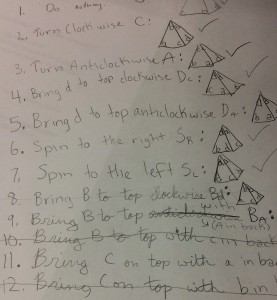 1. Do
2. Turn Clockwise C:
3. Turn Anticlockwise A:
4. Bring d to top clockwise Dc:
5. Bring d to top anticlockwise DA:
6. Spin to the right SR:
7. Spin to the left SL:
8. Bring B to top clockwise
9. Bring B to top with BA:
(A in back)
10. Bring B to top with c in back
11. Bring C on top with a in ba
12. Bring C on top with b in